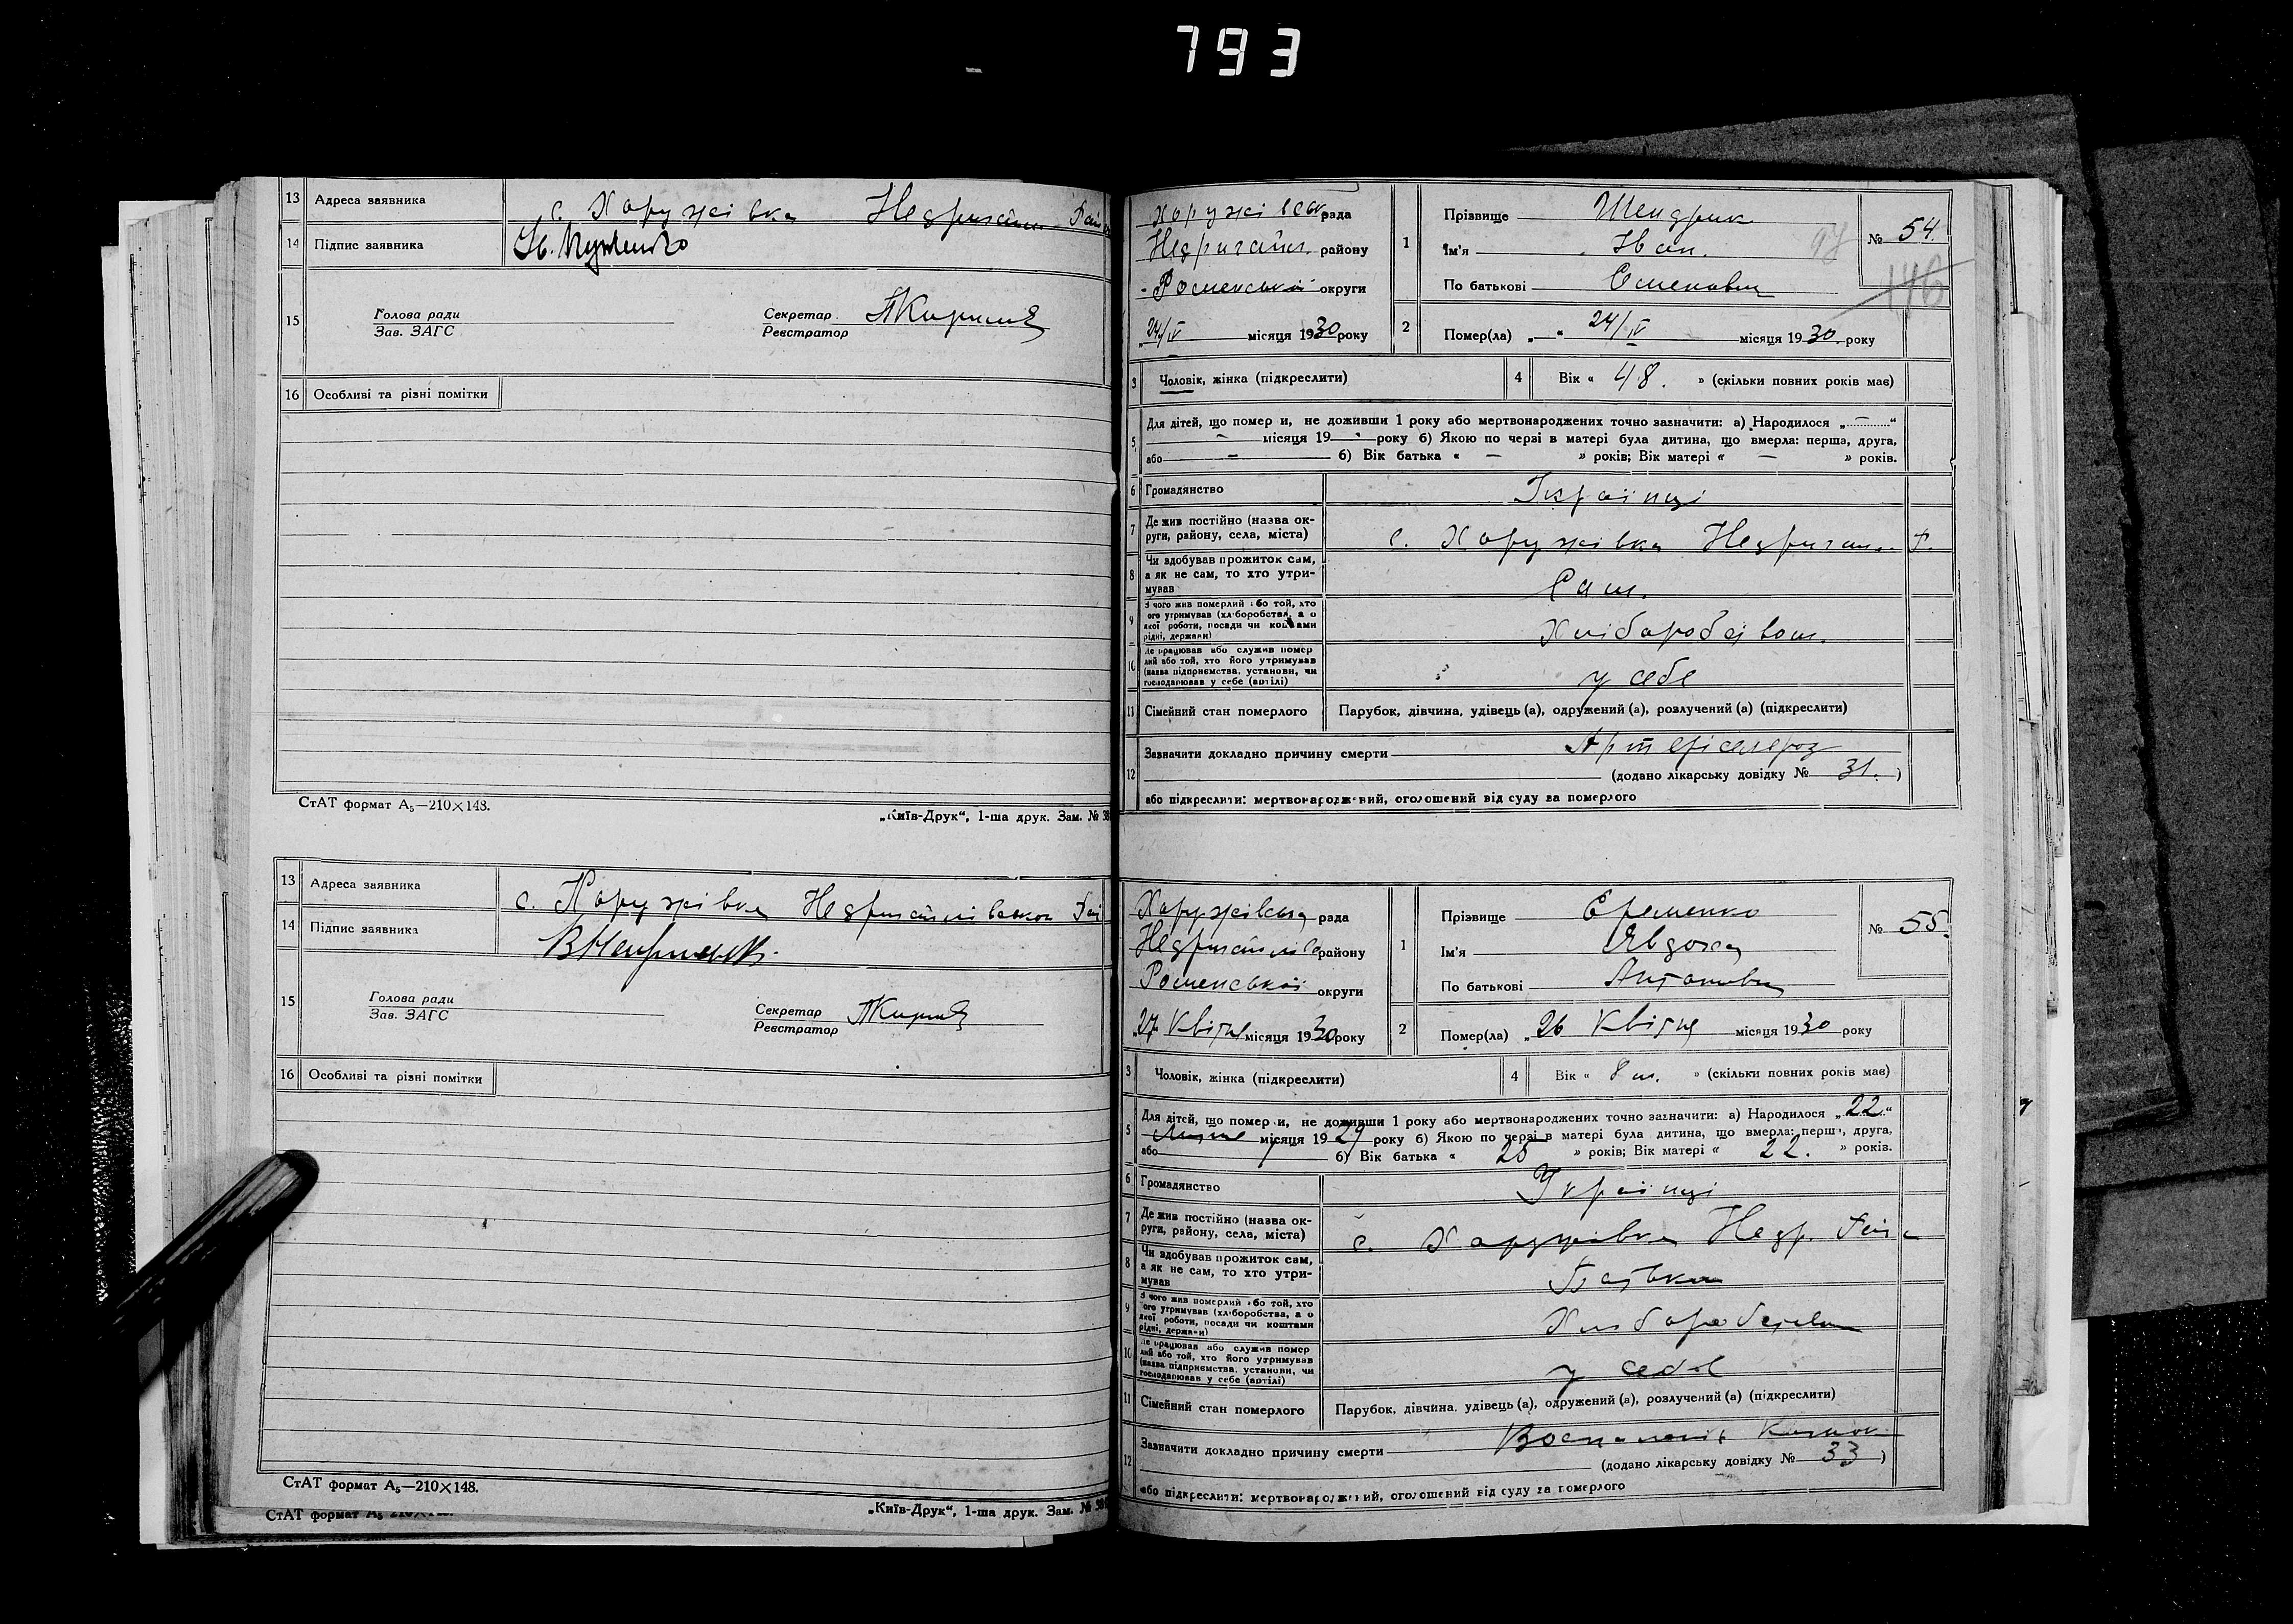 793
13 Адреса заявника с. Хоружівка Недригайл. Рай
14 Підпис заявника
15 Голова ради Секретар
Зав. ЗАГС Реєстратор
16 Особливі та різні помітки
СтАТ формат А₅—210×148.
„Київ-Друк“, 1-ша друк. Зам. №
13 Адреса заявника с. Хоружівка Недригайлівськог Рай
14 Підпис заявника
15 Голова ради Секретар
Зав. ЗАГС Реєстратор
16 Особливі та різні помітки
СтАТ формат А₅—210×148.
„Київ-Друк“, 1-ша друк. Зам. №
СтАТ формат А₅
Хоружівськ рада
Недригайл. району
Роменської округи
„24/IV місяця 1930 року
1 Прізвище Шендрик
Ім'я Іван.
По батькові Семенович
№ 54.
97
146
2 Помер(ла) „ 24/IV місяця 1930 року
3 Чоловік, жінка (підкреслити) 4 Вік « 48. » (скільки повних років має)
5 Для дітей, що помер и, не доживши 1 року або мертвонароджених точно зазначити: а) Народилося „ — “
— місяця 19 — року б) Якою по черзі в матері була дитина, що вмерла: перша, друга,
або — б) Вік батька « — » років; Вік матері « — » років.
6 Громадянство Українці
7 Де жив постійно (назва ок-
руги, району, села, міста) с. Хоружівка Недригайл. Р.
8 Чи здобував прожиток сам,
а як не сам, то хто утри-
мував Сам.
9 З чого жив померлий або той, хто
ого утримував (хліборобства, а о
якої роботи, посади чи коштами
рідні, держави) Хліборобством.
10 Де працював або служив помер
лий або той, хто його утримував
(назва підприємства, установи, чи
господарював у себе (артілі) у себе
11 Сімейний стан померлого Парубок, дівчина, удівець (а), одружений (а), розлучений (а) (підкреслити)
12 Зазначити докладно причину смерти Артеріселероз
(додано лікарську довідку № 31. )
або підкреслити: мертвонароджений, оголошений від суду за померлого
Хоружівська рада
Недригайлів району
Роменської округи
„27 Квітня місяця 1930 року
1 Прізвище Єременко
Ім'я Явдоха
По батькові Антонівна
№ 55.
2 Помер(ла) „26 Квітня місяця 1930 року
3 Чоловік, жінка (підкреслити) 4 Вік « 8 м. » (скільки повних років має)
5 Для дітей, що помер и, не доживши 1 року або мертвонароджених точно зазначити: а) Народилося „22“
місяця 1929 року б) Якою по черзі в матері була дитина, що вмерла: перша, друга,
або б) Вік батька « 25 » років; Вік матері « 22. » років.
6 Громадянство Українці
7 Де жив постійно (назва ок-
руги, району, села, міста) с. Хоружівка Недр. Рай
8 Чи здобував прожиток сам,
а як не сам, то хто утри-
мував Батько
9 З чого жив померлий або той, хто
ого утримував (хліборобства, а о
якої роботи, посади чи коштами
рідні, держави)
10 Де працював або служив помер
лий або той, хто його утримував
(назва підприємства, установи, чи
господарював у себе (артілі) у себе
11 Сімейний стан померлого Парубок, дівчина, удівець (а), одружений (а), розлучений (а) (підкреслити)
12 Зазначити докладно причину смерти
(додано лікарську довідку № 33 )
або підкреслити: мертвонароджений, оголошений від суду за померлого